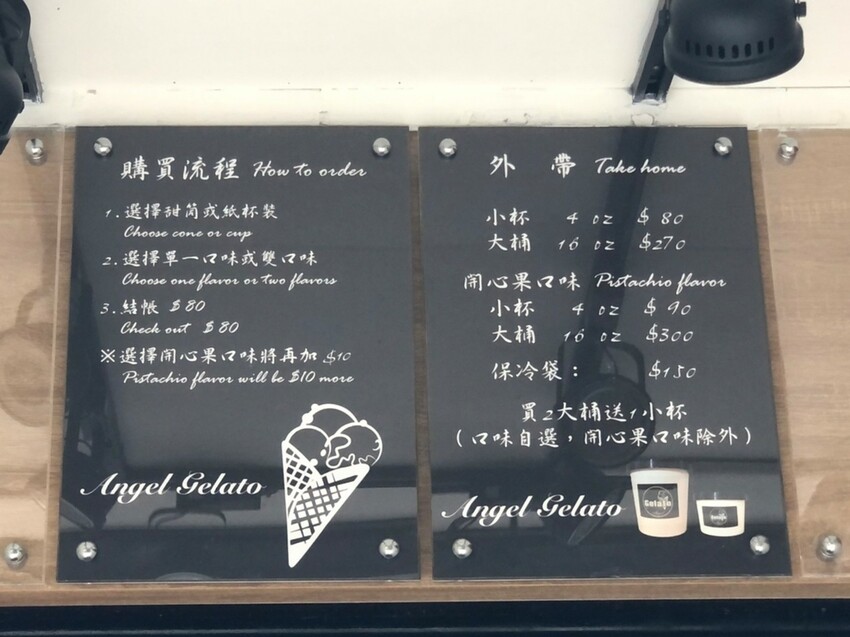 購買流程 How to order
1. 選擇甜筒或紙杯裝
Choose cone or cup
2. 選擇單一口味或雙口味
Choose one flavor or two flavors
3. 結帳 $80
Check out $80
※選擇開心果口味將再加 $10
Pistachio flavor will be $10 more
Angel Gelato
外 帶 Take home
小杯 4 oz $80
大桶 16 oz $270
開心果口味 Pistachio flavor
小杯 4 oz $90
大桶 16 oz $300
保冷袋： $150
買2大桶送1小杯
（口味自選，開心果口味除外）
Angel Gelato
Gelato